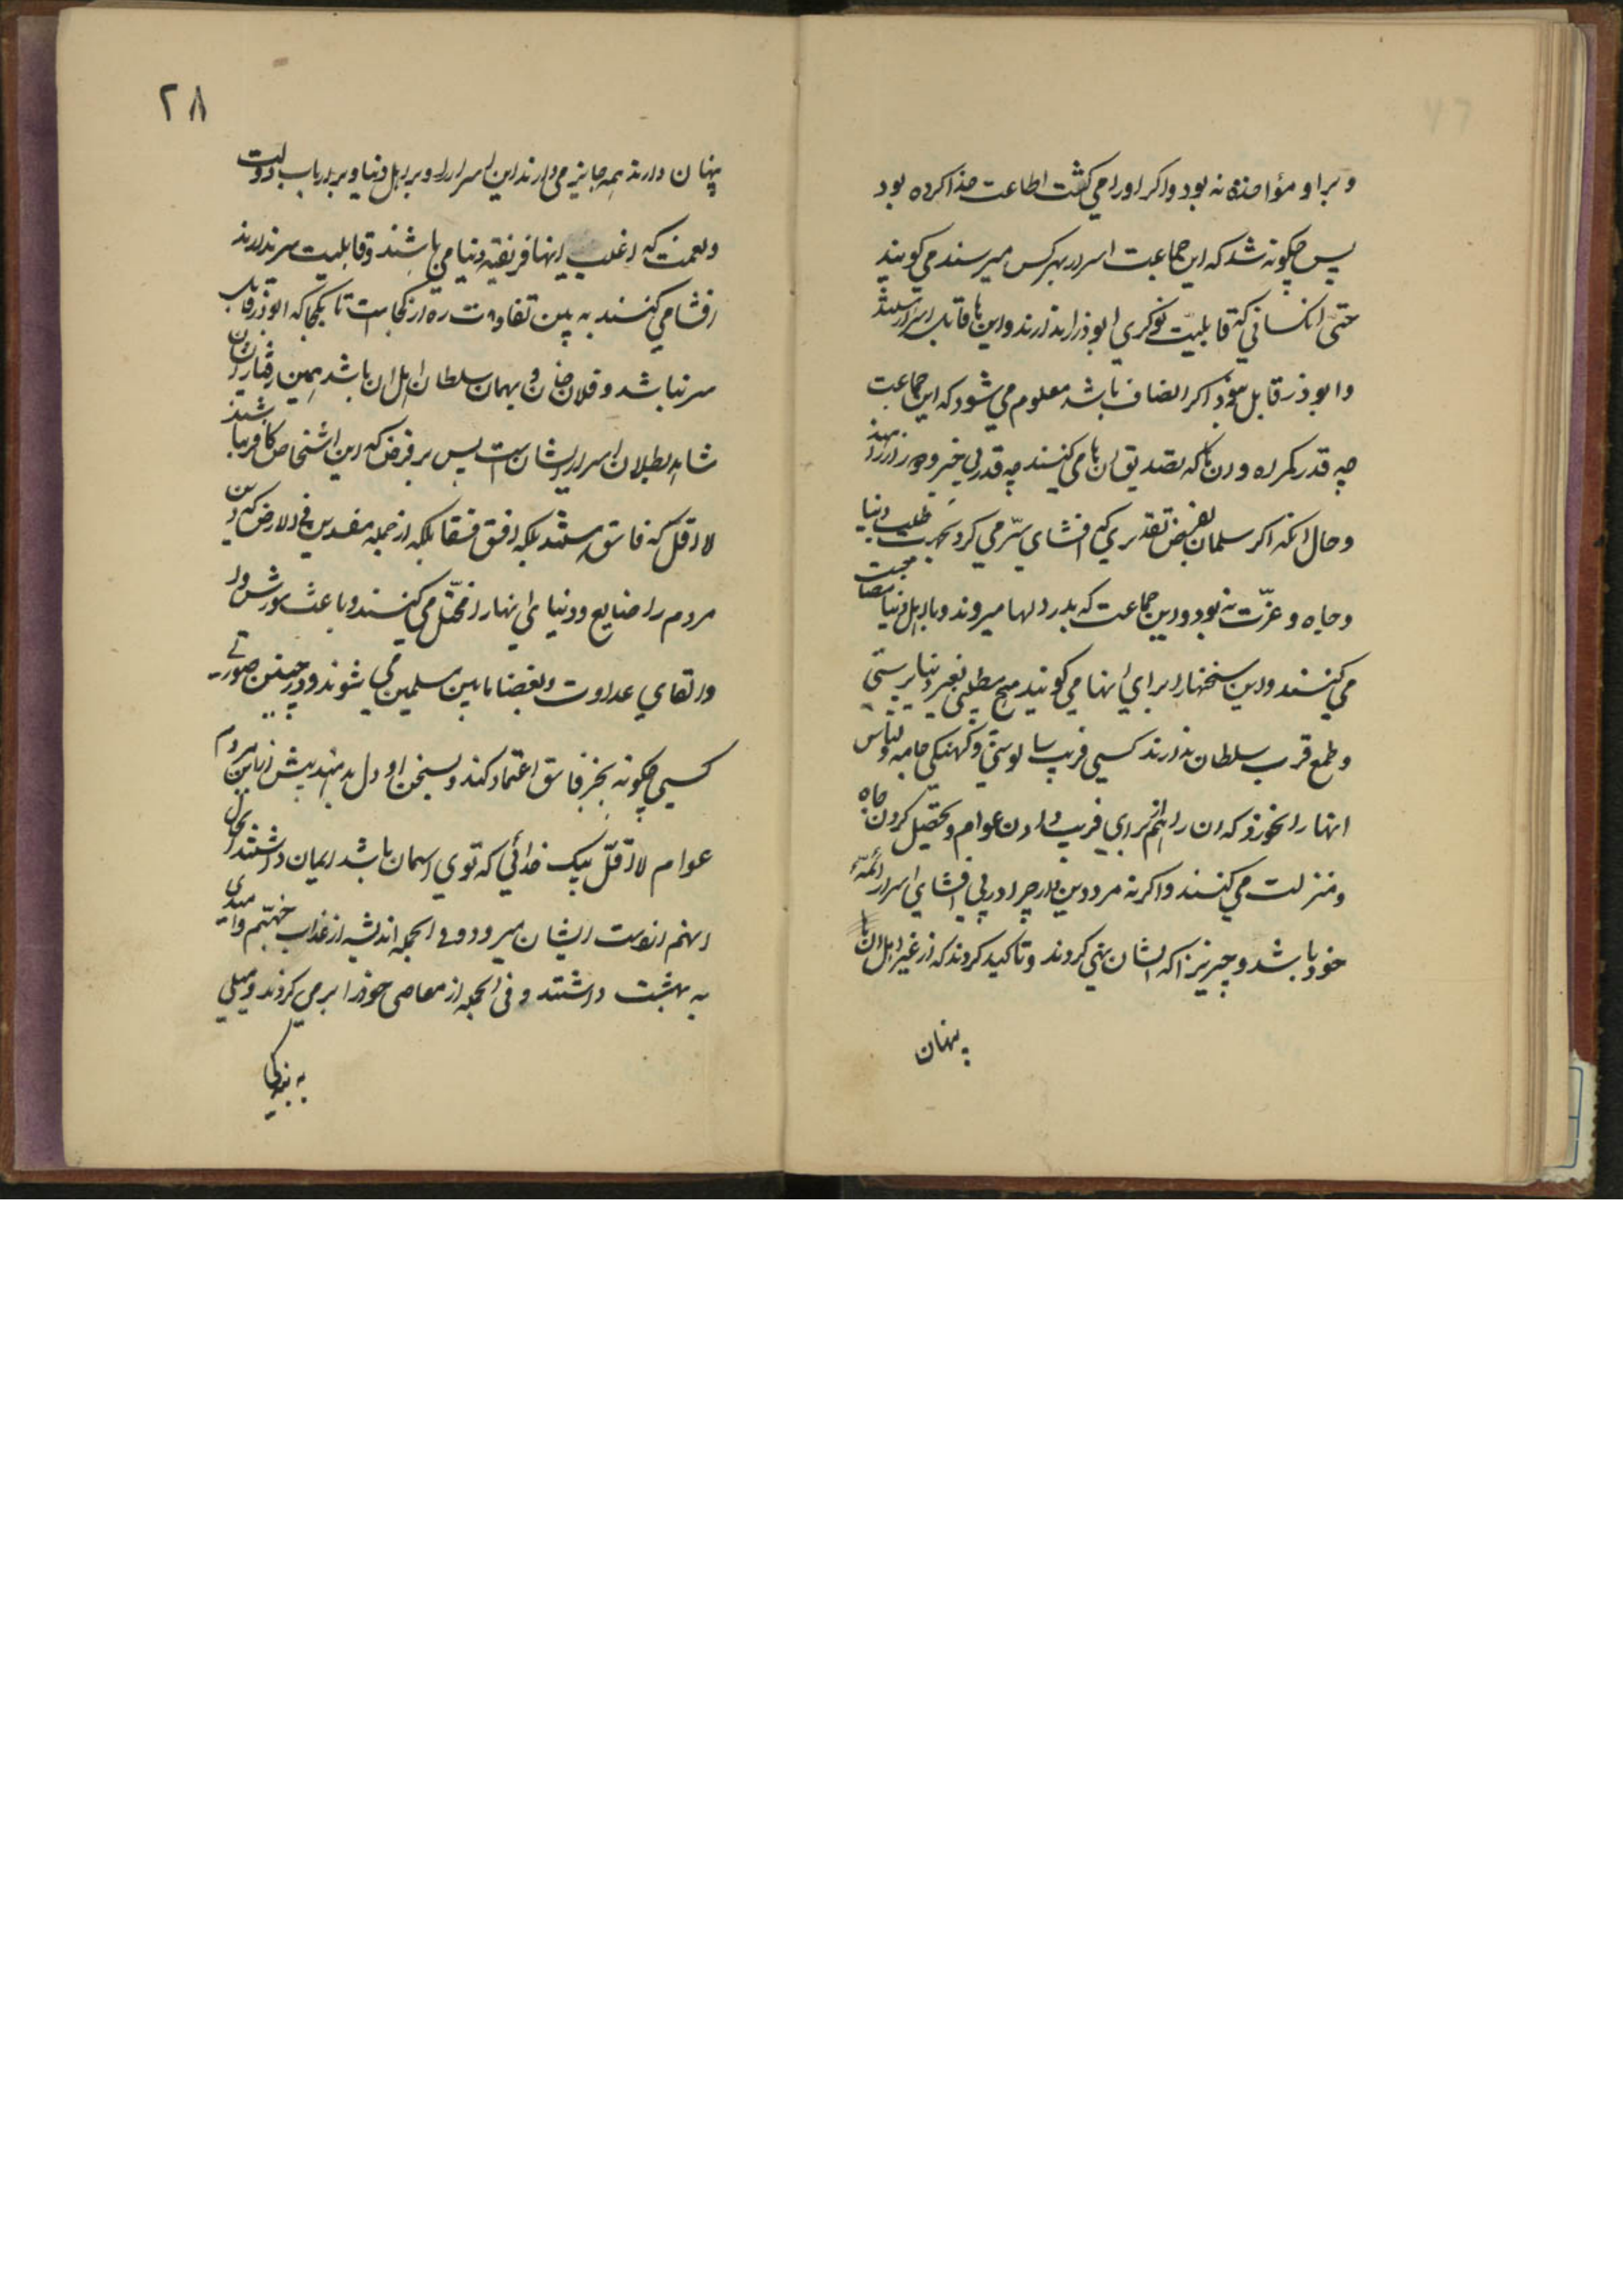 و بر او مؤاخذه نه بود و اکر او را می کشت اطاعت خدا کرده بود
پس چکونه شد که این جماعت اسرار بهر کس میرسند می کویند
حتی انکسانی که قابلیت نوکری ابوذر را ندارند و این ها قابل اسرار هستند
و ابوذر قابل نبود اکر انصاف باشد معلوم می شود که این جماعت
چه قدر کمراه و ان ها که تصدیق ان ها می کنند چه قدر بی خبر و
و حال انکه اکر سلمان بفرض تقدیری که افشای سرّ می کرد بجهت طلب دنیا
و جاه و عزّت نه بود و این جماعت که بدر دلها میروند و با اهل دنیا مصاحبت
می کنند و این سخنها را برای انها می کویند هیچ مطلبی بغیر دنیا پرستی
و طمع قرب سلطان ندارند کسی فریب سالوسی و کهنکی جامه و لباس
انها را نخورد که ان را هم از برای فریب دادن عوام و تحصیل کردن جاه
و منزلت می کنند و اکر نه مرد دین دار چرا در پی افشای اسرار ائمّهٔ
خود باشد و چیزیرا که ایشان نهی کردند و تاکید کردند که از غیر اهل ان
پنهان
۲۸
پنهان دارند همه جا نیز می دارند این اسرار را و بر اهل دنیا و بر ارباب دولت
و نعمت که اغلب اینها فریفتهٔ دنیا می باشند و قابلیت سر ندارند
افشا می کنند به بین تفاوت ره از کجاست تا بکجا که ابوذر قابل
سر نباشد و فلان خان و بهمان سلطان اهل ان باشد همین رفتار ایشان
شاهد بطلان اسرار ایشان است پس بر فرض که این اشخاص کافر نباشند
لا اقل که فاسق هستند بلکه افسق فسقا بلکه از جمله مفسدین فی الارض که دین
مردم را ضایع و دنیای انها را مختل می کنند و باعث شورش و
و القای عداوت و بغضا ما بین مسلمین می شوند و در چنین صورتی
کسی چکونه بخبر فاسق اعتماد کند و بسخن او دل بدهد پیش از این مردم
عوام لا اقلّ بیک خدائی که توی اسمان باشد ایمان داشتند
انهم از دست ایشان میرود و فی الجمله اندیشه از عذاب جهنّم و امیدی
به بهشت داشتند و فی الجمله از معاصی حذر می کردند و میلی
به بندکی